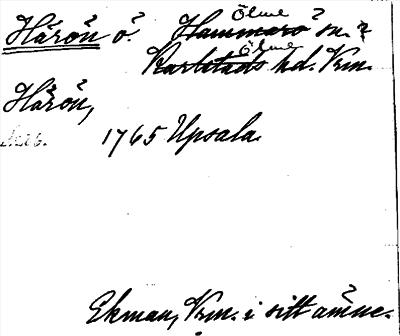 Härön ö. Ölme Hammarö sn. ?
Ölme Karlstads hd. Vrm.
Härön,
1765 Upsala.
Ekman, Vrm. i sitt ämne.